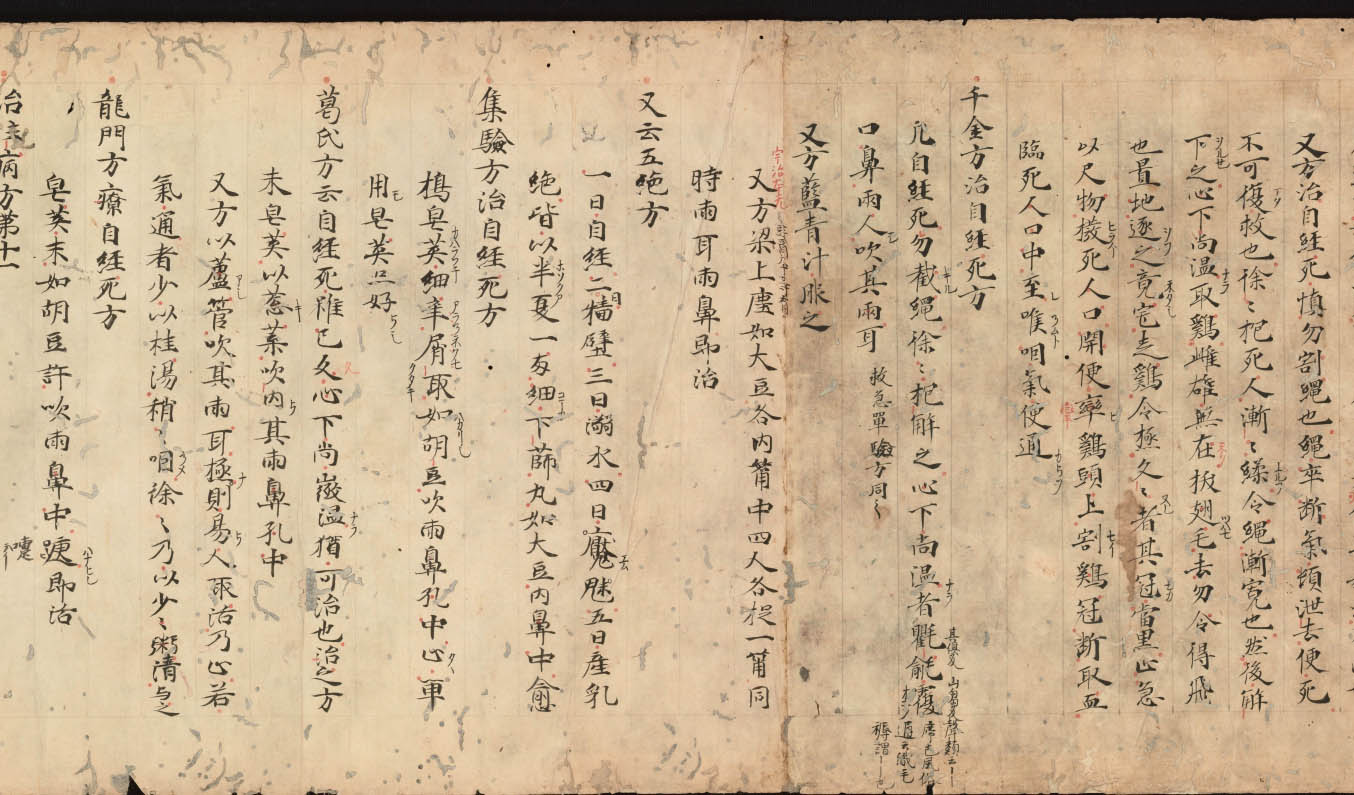 又方治自経死慎勿割縄也縄卒断氣頓泄去便死
不可復救也徐〻抱死人漸〻緩令縄漸寛也然後解
下之心下尚温取鷄雌雄無在拔翅毛去勿令得飛
也置地逐之竟宅走鷄令極久〻者其冠當黒也急
以尺物撥死人口開便牽鷄頭上割鷄冠断取血
臨死人口中至喉咽氣便通
千金方治自経死方
凡自経死勿截縄徐〻抱解之心下尚温者氍毹覆
口鼻兩人吹其兩耳 救急單驗方同〻
又方藍青汁服之
又方梁上塵如大豆各内筩中四人各捉一筩同
時兩耳兩鼻即治
又云五絶方
一曰自経二曰墻壁三曰溺水四曰魘魅五曰産乳
絶皆以半夏一兩細下篩丸如大豆内鼻中愈
集驗方治自経死方
擣皂莢細辛屑取如胡豆吹兩鼻孔中心軍
用皂莢只好
葛氏方云自経死雖已久心下尚微温猶可治也治之方
末皂莢以葱葉吹内其兩鼻孔中
又方以蘆管吹其兩耳極則易人取治乃止若
氣通者少以桂湯稍〻咽徐〻乃以少〻粥清与之
龍門方療自経死方
皂莢末如胡豆許吹兩鼻中嚏即治
治　病方第十一